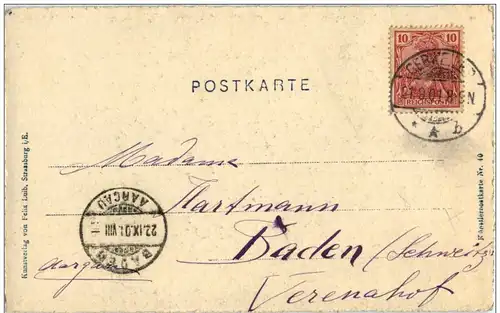 10 10
REICHSPOST
21.9.01.
* A b
POSTKARTE
Madame
Hartmann
Baden (Schweiz)
Aargau
Verenahof
BADEN
22.IX.01.VIII
AARGAU
Kunstverlag von Felix Luib, Strassburg i/E.
Künstlerpostkarte Nr. 40